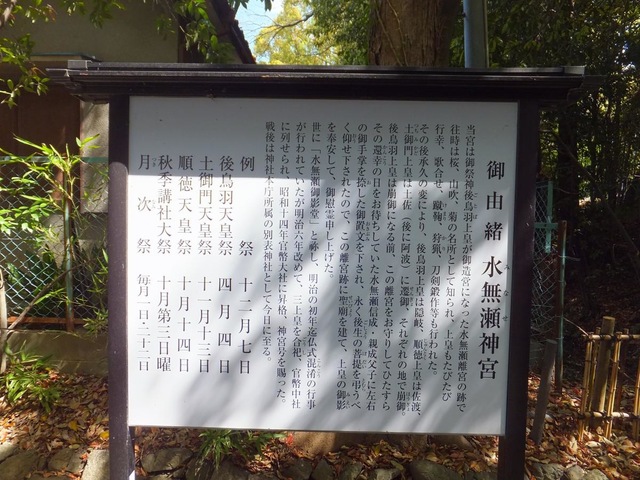 御由緒 水無瀬神宮
みなせ
当宮は御祭神後鳥羽上皇が御造営になった水無瀬離宮の跡で
往時は桜、山吹、菊の名所として知られ、上皇もたびたび
行幸、歌合せ、蹴鞠、狩猟、刀剣鍛作等も行われた。
その後承久の変により、後鳥羽上皇は隠岐、順徳上皇は佐渡、
土御門上皇は土佐(後に阿波)に遷御、それぞれの地で崩御。
後鳥羽上皇は崩御になる前、この離宮をお守りしてひたすら
その還幸の日をお待ちしていた水無瀬信成・親成父子に左右
の御手掌を捺した御置文を下され、永く後生の菩提を弔うべ
く仰せ下されたので、この離宮跡に聖廟を建て、上皇の御影
を奉安して、御慰霊申し上げた。
世に「水無瀬御影堂」と称し、明治の初年迄仏式混淆の行事
が行われていたが明治六年改めて、三上皇を合祀、官幣中社
に列せられ、昭和十四年官幣大社に昇格、神宮号を賜った。
戦後は神社本庁所属の別表神社として今日に至る。
例祭 十二月七日
後鳥羽天皇祭 四月四日
土御門天皇祭 十一月十三日
順徳天皇祭 十月十四日
秋季講社大祭 十月第三日曜
月次祭 毎月一日・二十二日